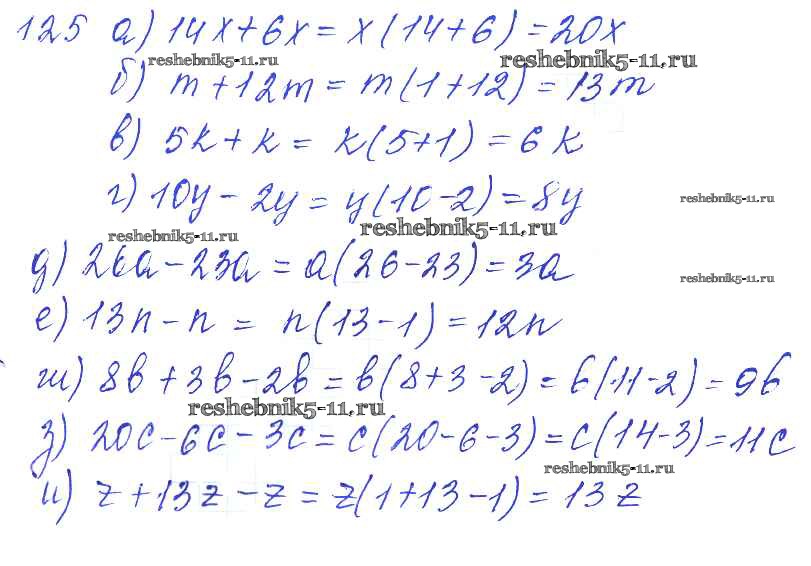 125 а) 14x+6x = x(14+6) = 20x
reshebnik5-11.ru reshebnik5-11.ru
б) m+12m = m(1+12) = 13m
в) 5k+k = k(5+1) = 6k
г) 10y-2y = y(10-2) = 8y
reshebnik5-11.ru
reshebnik5-11.ru reshebnik5-11.ru
д) 26a-23a = a(26-23) = 3a
reshebnik5-11.ru
е) 13n-n = n(13-1) = 12n
ж) 8b+3b-2b = b(8+3-2) = b(11-2) = 9b
reshebnik5-11.ru
з) 20c-6c-3c = c(20-6-3) = c(14-3) = 11c
reshebnik5-11.ru
и) z+13z-z = z(1+13-1) = 13z